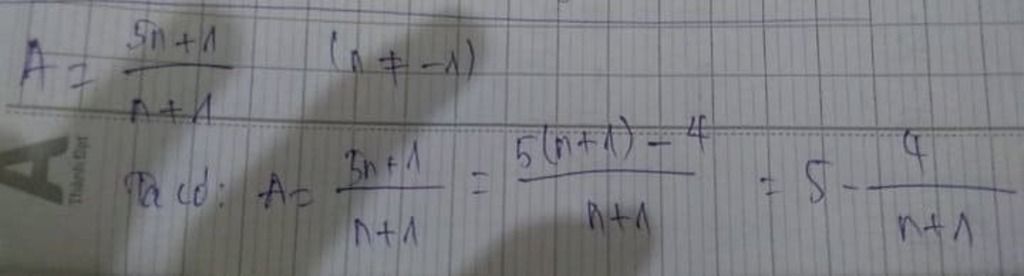 A = \frac{5n+1}{n+1} (n ≠ -1)
A
Thành Đạt
Ta có: A = \frac{5n+1}{n+1} = \frac{5(n+1)-4}{n+1} = 5 - \frac{4}{n+1}